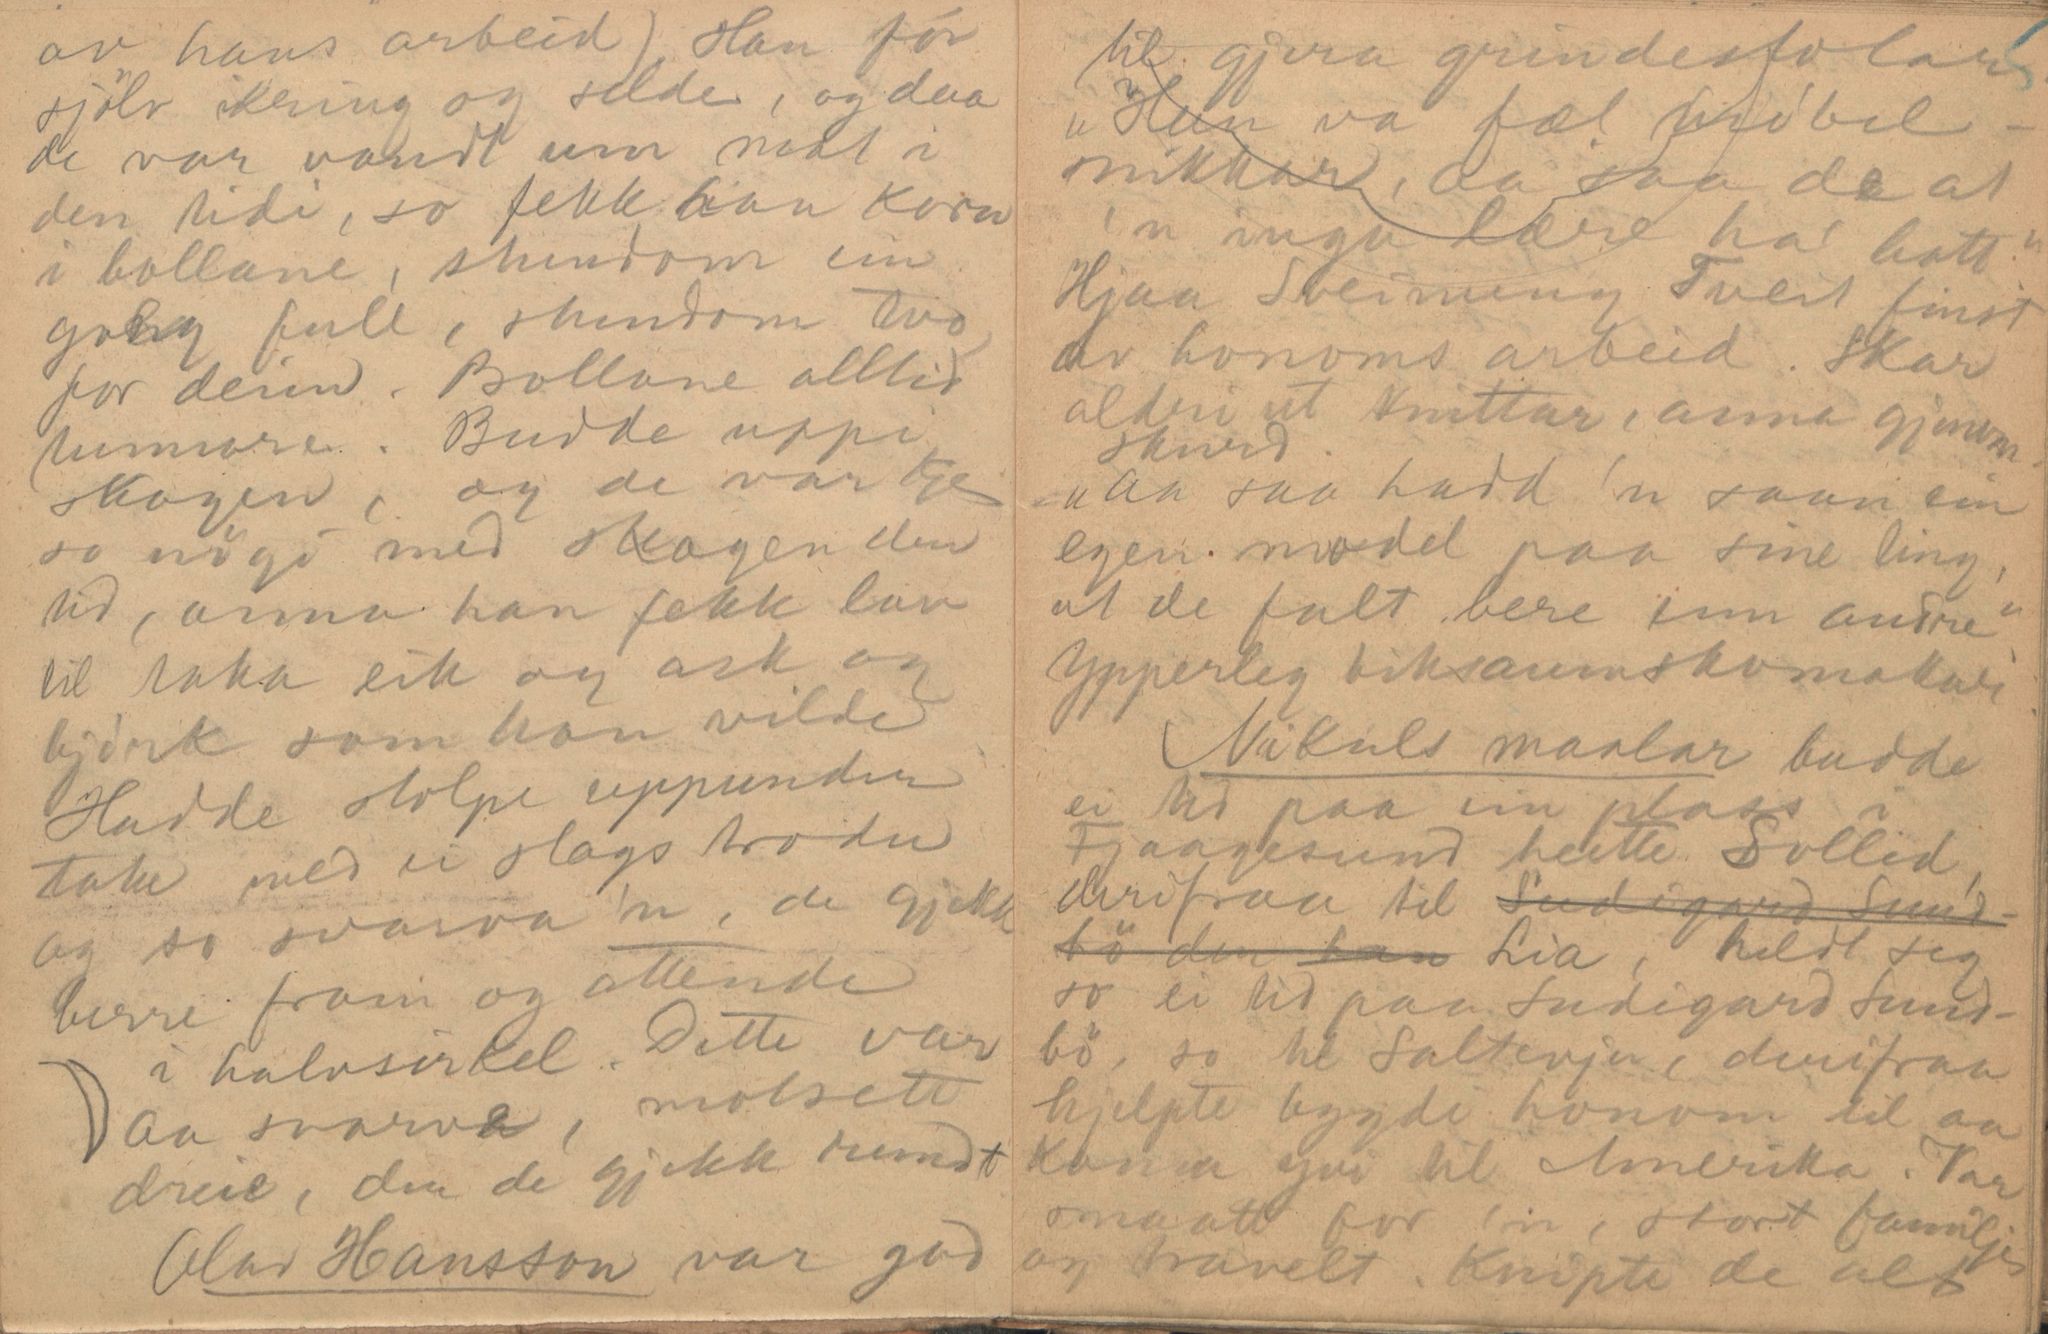 av hans arbeid). Han fór
sjölv ikring og selde, og daa
de var vandt um mat i
den tidi, so fekk han korn
i bollane, stundom ein
gong full, stundom two
for deim. Bollane alltid
tunnare. Budde uppi
skogen, og de var kje
so nögö med skogen den
tid, anna han fekk lov
til taka eik og ask og
björk som han vilde
Hadde stolpe uppunder
take med ei slags trodu
og so svarva 'n, de gjekk
berre fram og attende
i halvsirkel. Dette var
aa svarva, motsett
dreie, der de gjekk rundt
Olav Hansson var god
til gjera grindestolar
"Han va fæl möbel-
snikkar, aa saa de at
'n ingu lære ha' hatt"
Hjaa Sveinung Tveit finst
av honoms arbeid. Skar
aldri ut knittar, anna gjenom-
skurd.
"Aa saa hadd 'n saan ein
egen model paa sine ting,
at de falt bere inn andre"
Ypperleg biksaumskomakar
Nikuls maalar budde
ei tid paa ein plass i
Fjaagesund heitte Sollid,
derifraa til Sudigard Sund-
bö der han Lia, heldt seg
so ei tid paa Sudigard Sund-
bö, so til Saltevju, derifraa
hjelpte bygdi honom til aa
koma yvi til Amerika. Var
smaatt for 'n, stort familje
og travelt. Knipte de alt